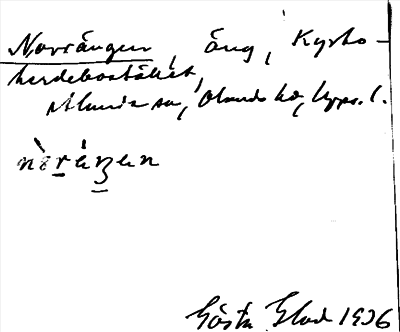 Norrängen, äng, Kyrko-
herdebostället,
Alunda sn, Olands hd, Upps. l.
nòrä́ŋen
Gösta Glad 1936